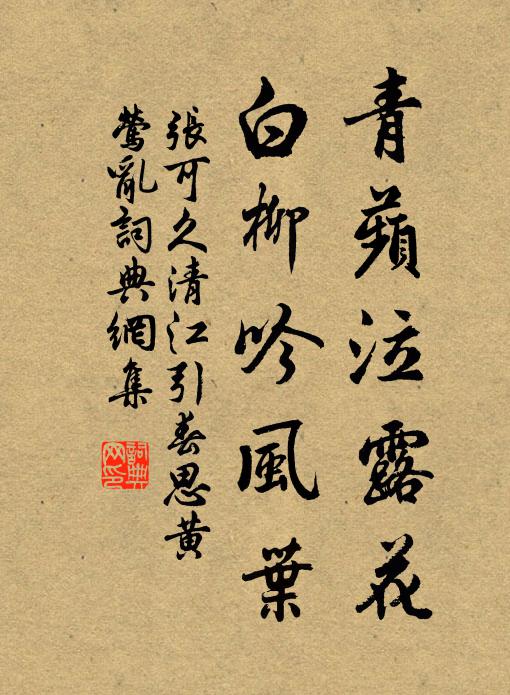 青蘋泣露花
白柳吟風葉
張可久清江引春思黃
鶯亂詞典網集
詞典
网印